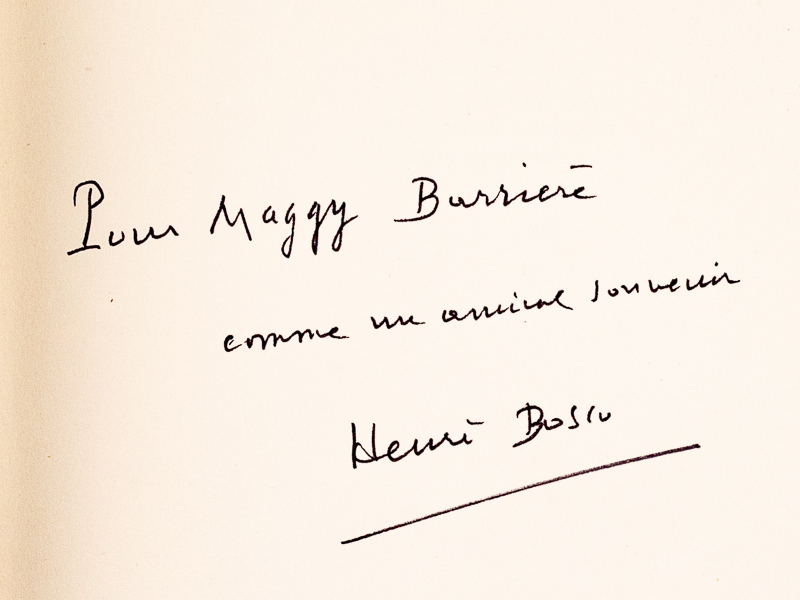 Pour Maggy Barrière
comme un amical souvenir
Henri Bosco